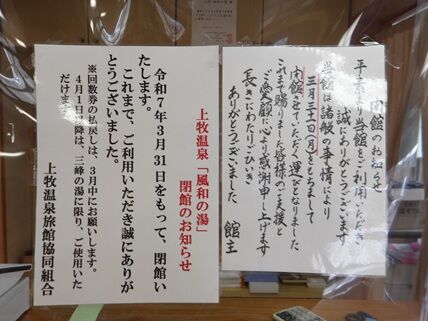 閉館のお知らせ
平素より当館をご利用いただき
誠にありがとうございます
当館は諸般の事情により
三月三十一日(月)をもちまして
閉館させていただく運びとなりました
これまで賜りました皆様のご支援と
ご愛顧に心より感謝申し上げます
長きにわたりごひいき
ありがとうございました
館主
上牧温泉「風和の湯」
閉館のお知らせ
令和7年3月31日をもって、閉館い
たします。
これまで、ご利用いただき誠にありが
とうございました。
※回数券の払戻しは、3月中にお願いします。
4月1日以降は、三峰の湯に限り、ご使用いた
だけます。
上牧温泉旅館協同組合